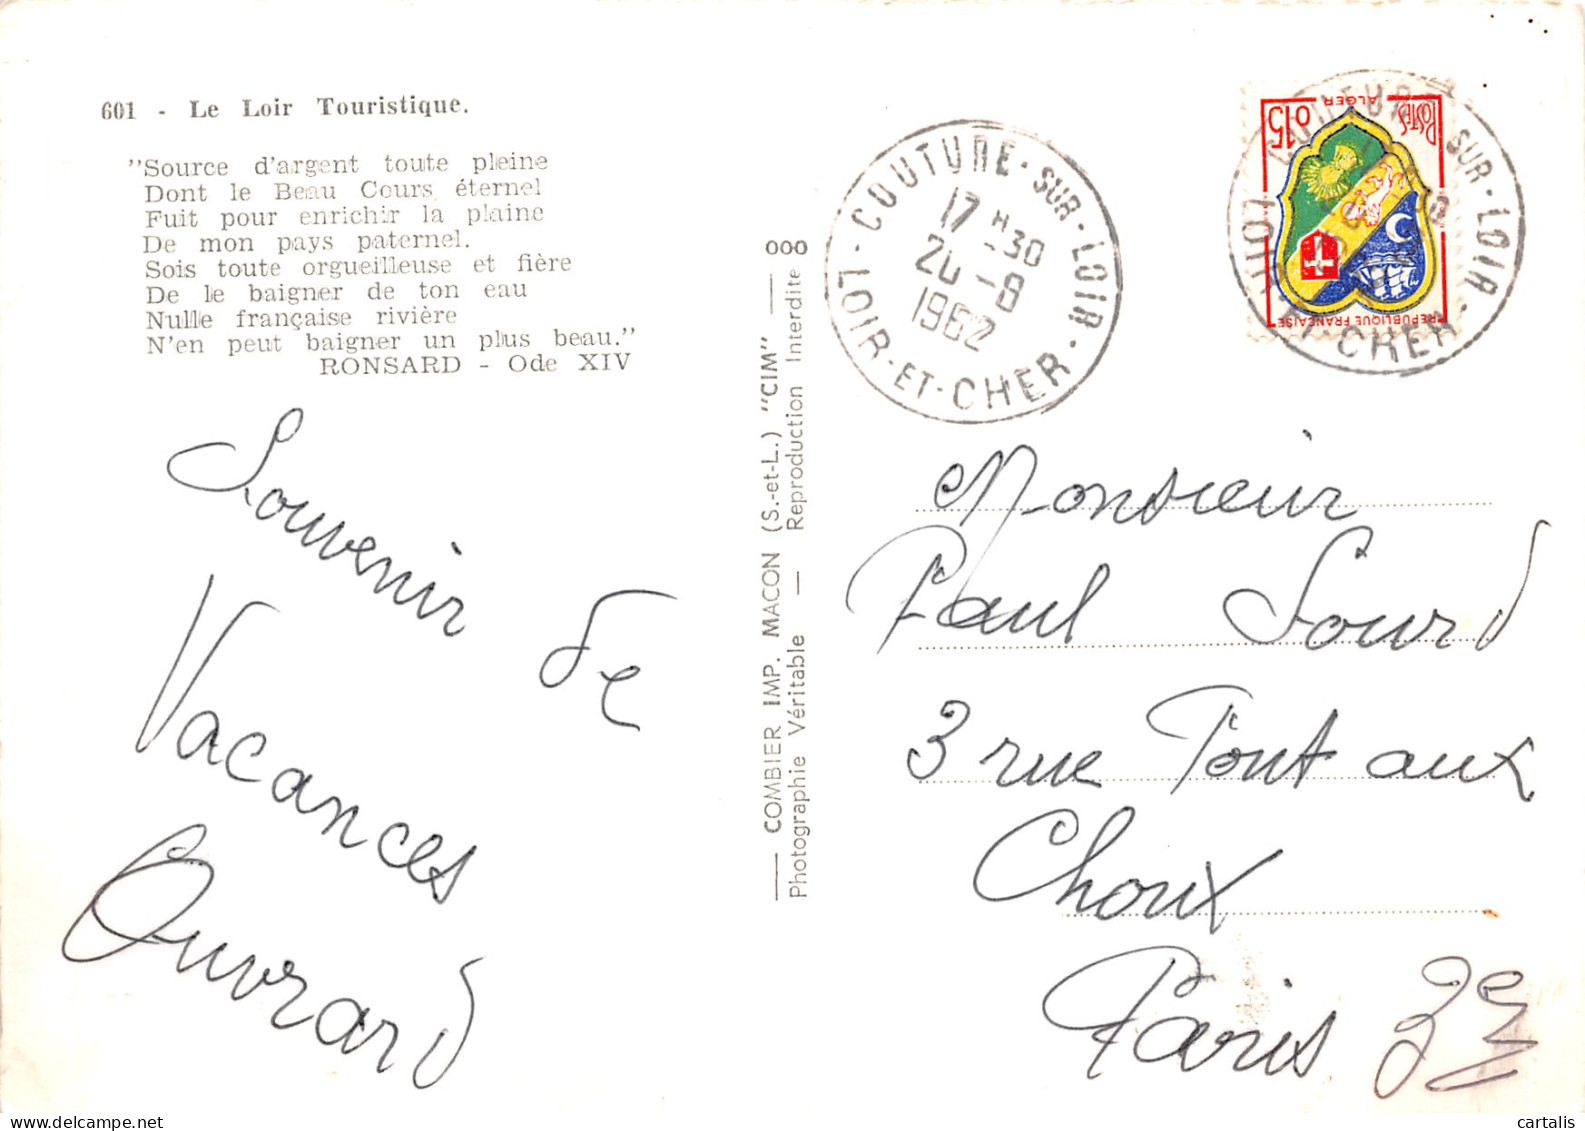 601 - Le Loir Touristique.
"Source d'argent toute pleine
Dont le Beau Cours éternel
Fuit pour enrichir la plaine
De mon pays paternel.
Sois toute orgueilleuse et fière
De le baigner de ton eau
Nulle française rivière
N'en peut baigner un plus beau."
RONSARD - Ode XIV
Souvenir de
Vacances
Ouvrard
COMBIER IMP. MACON (S.-et-L.) "CIM" —— 000
Photographie Véritable — Reproduction Interdite
COUTURE-SUR-LOIR
17 H-30
20-8
1962
LOIR-ET-CHER
POSTES
ALGER
0,15
REPUBLIQUE FRANÇAISE
COUTURE-SUR-LOIR
LOIR-ET-CHER
Monsieur
Paul Sourd
3 rue Pont aux
Choux
Paris 3e
cartalis